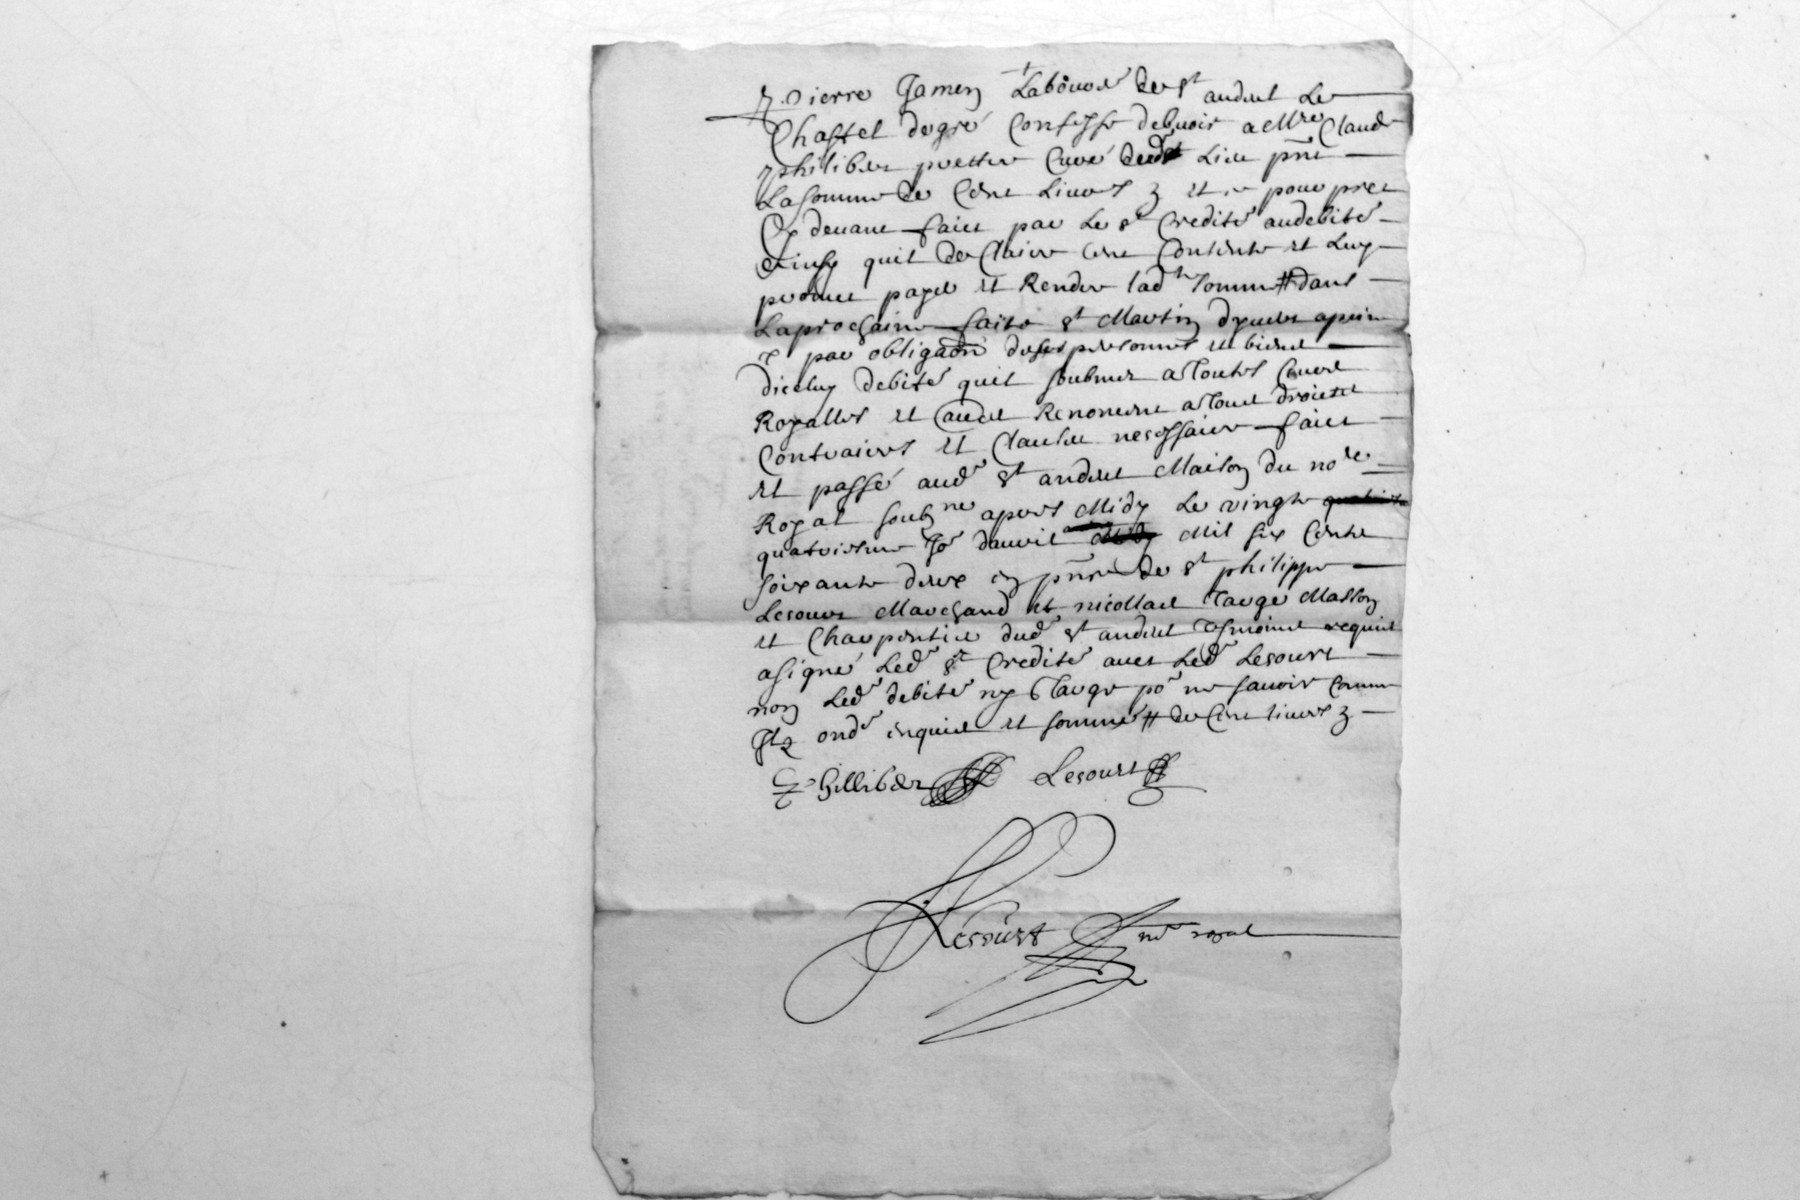 Pierre Jamen Laboure de st andret Le
Chastel de gré Confesse debvoir a Mre Claude
philiber prettre Curé dud Lieu pnt
La somme de Cent Livres z et ce pour pret
Cy devant faict par Le sr Credité audebité
Ainsy quil de Claire Cent Contente et Luy
promet payer et Rendre ladte somme # dans
La prochaine faite st Martin dyvert apeine
par obligaon de ses personnes et biens
diceluy debité quil soubmet a Toutes Cours
Royalles et Renoncent a Tout droictz
Contraires et Clauses necessaire faict
et passé aud st andret Maison du nore
Royal soubne apres Midy Le vingte
quatriesme Jor davril Mil six Cents
soixante deux en pnce de sr philippe
Lesourt Marchand et nicollas Targe Masson
et Charpentier dud st andret Tesmoins requis
a signé Led sr Credité avec Led Lesourt
non Led debité ny Targe por ne savoir Comme
Ilz ond enquis et sommé # de Cent livres z
Philliber Lesourt
Lesourt nre royal